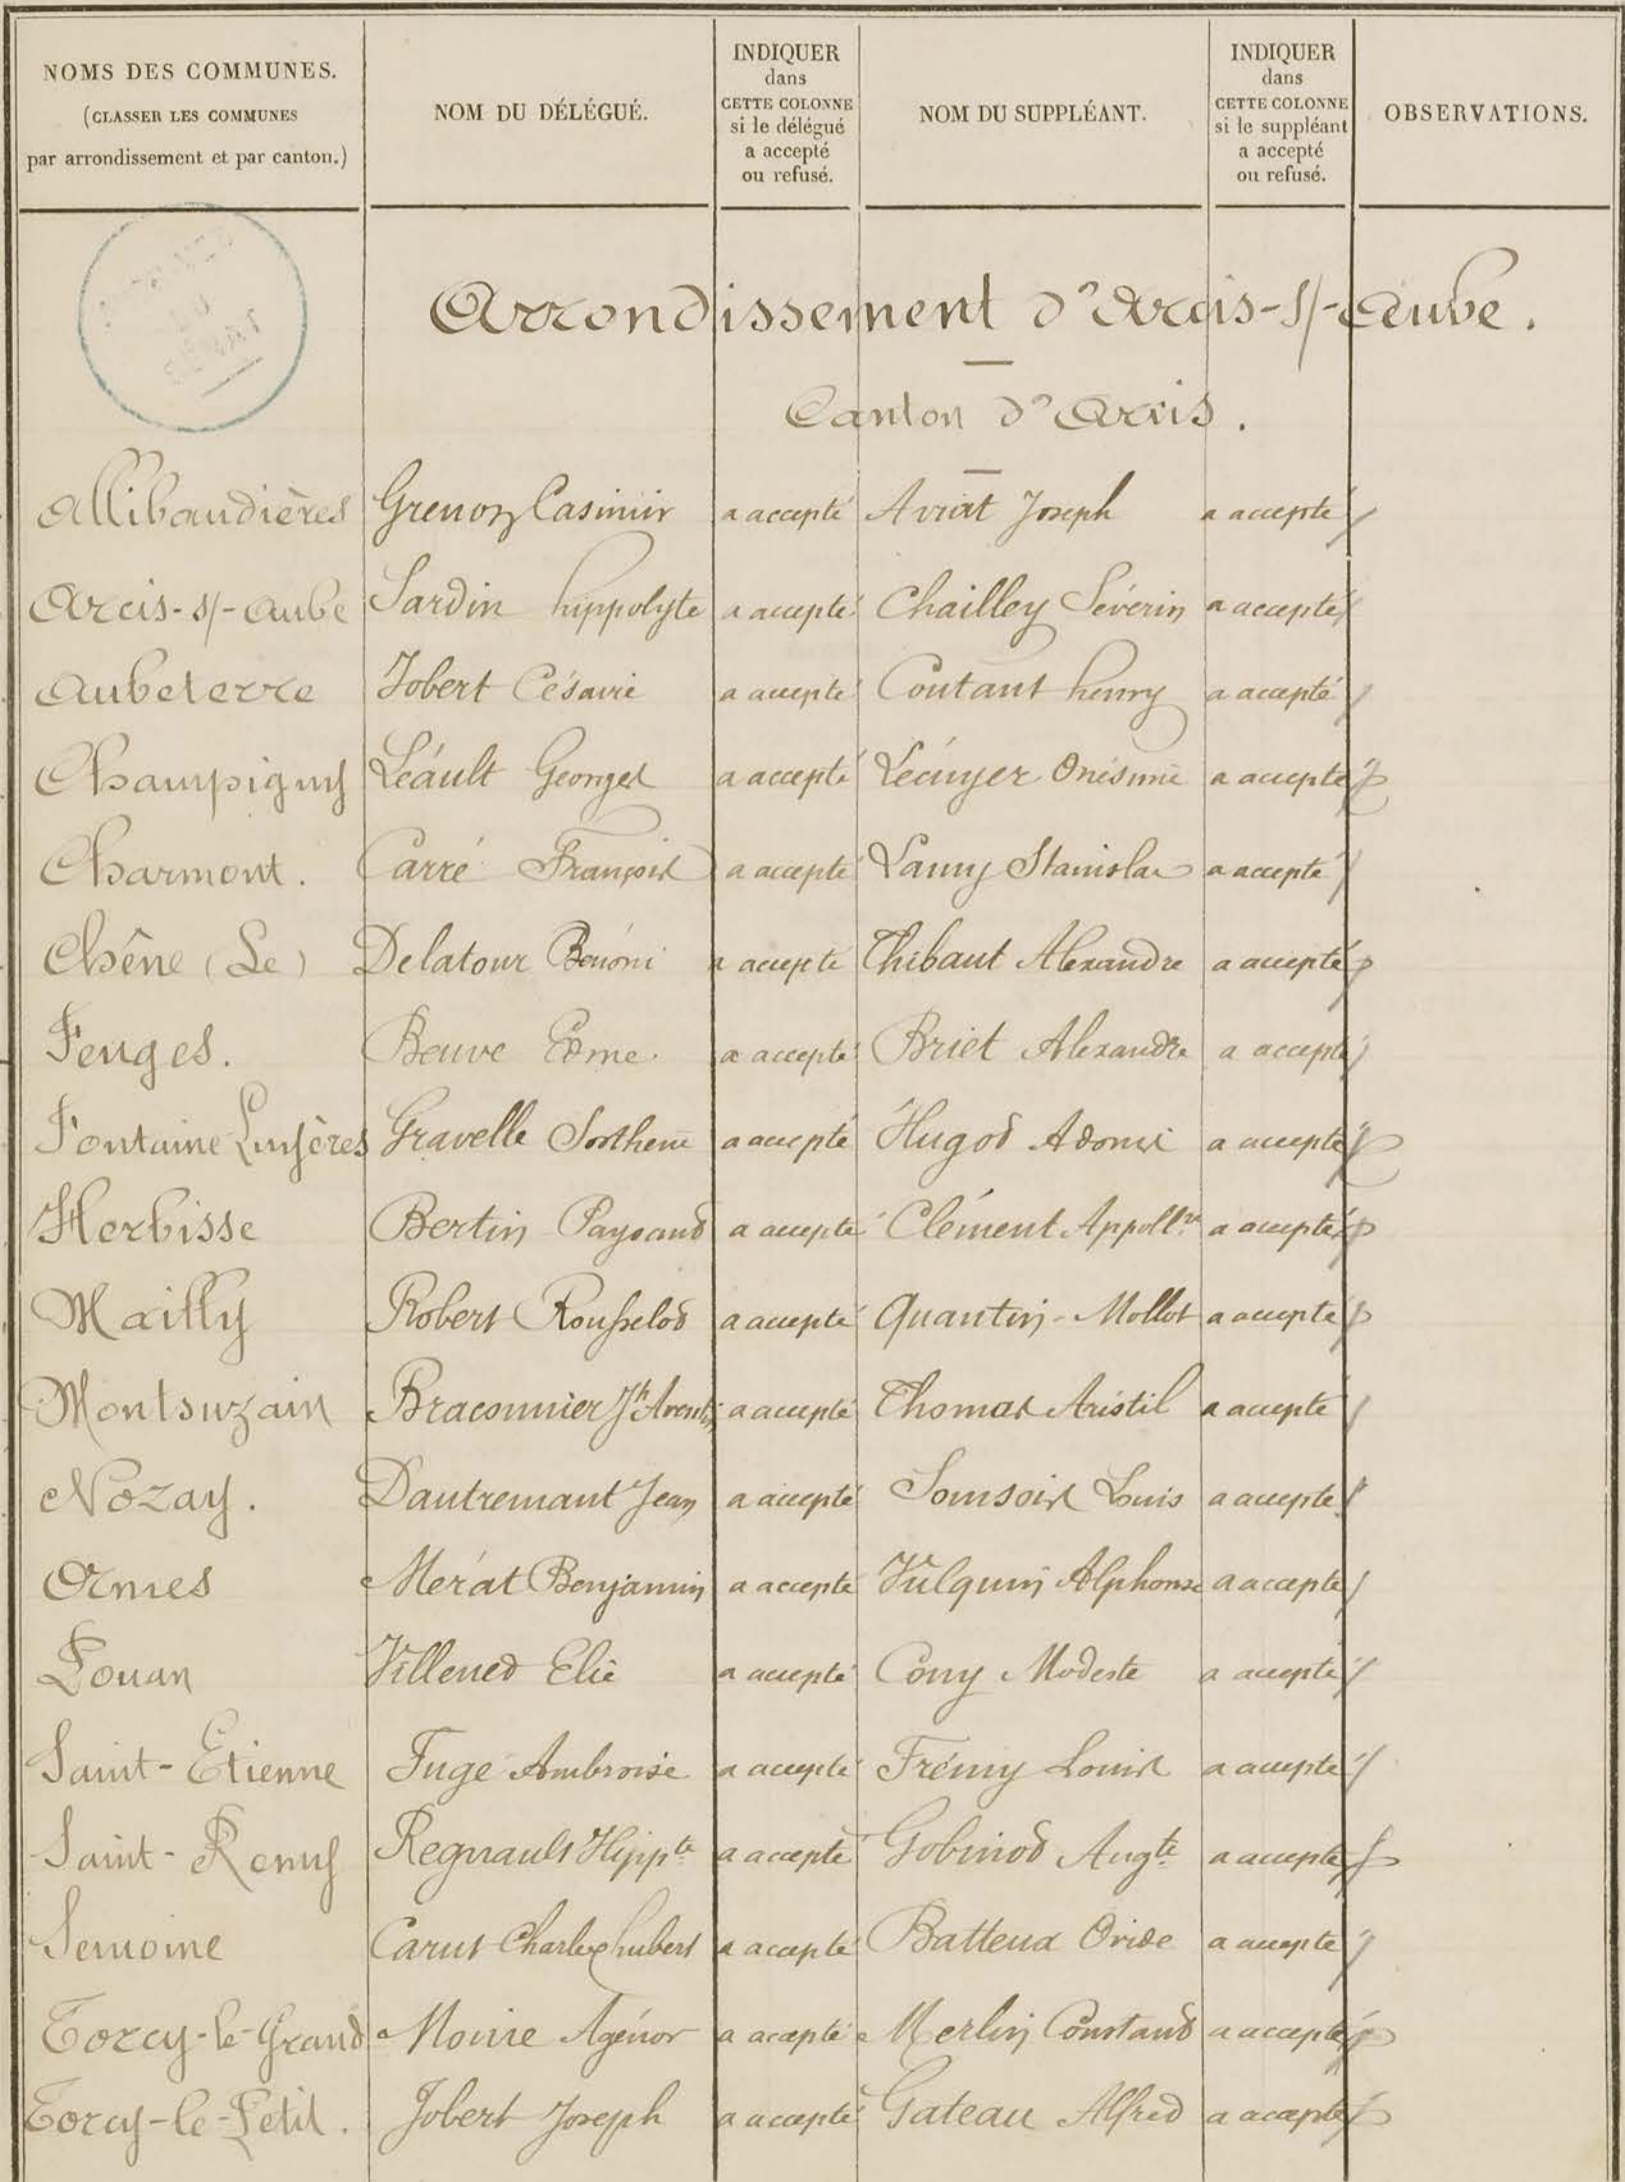 NOMS DES COMMUNES.
(CLASSER LES COMMUNES
par arrondissement et par canton.)
NOM DU DÉLÉGUÉ.
INDIQUER
dans
CETTE COLONNE
si le délégué
a accepté
ou refusé.
NOM DU SUPPLÉANT.
INDIQUER
dans
CETTE COLONNE
si le suppléant
a accepté
ou refusé.
OBSERVATIONS.
Arrondissement d'Arcis-s/-Aube.
Canton d'Arcis.
Allibaudières Grenon Casimir a accepté Aviat Joseph a accepté
Arcis-s/-Aube Sardin hippolyte a accepté Chailley Séverin a accepté
Aubeterre Jobert Césaire a accepté Coutant henry a accepté
Champigny Léault Georges a accepté Lécuyer Onésime a accepté
Charmont. Carré François a accepté Lamy Stanislas a accepté
Chêne (Le) Delatour Bénóni a accepté Thibaut Alexandre a accepté
Feuges. Beuve Edme. a accepté Briet Alexandre a accepté
Fontaine Luyères Gravelle Sosthene a accepté Hugot Adonis a accepté
Herbisse Bertin Paysant a accepté Clément a accepté
Mailly Robert Rousselot a accepté Quantin-Mollot a accepté
Montsuzain Braconnier a accepté Thomas Aristil a accepté
Nozay. Dautremant Jean a accepté Somsois Louis a accepté
Ormes Mérat Benjamin a accepté Vulquin Alphonse a accepté
Pouan Villenet Elie a accepté Cony Modeste a accepté
Saint-Etienne Fugé Ambroise a accepté Frémy Louis a accepté
Saint-Remy Regnault Hippte a accepté Gobinot Augte a accepté
Semoine Carut Charles hubert a accepté Batteux Ovide a accepté
Torcy-le-Grand Moine Agénor a accepté Merlin Constant a accepté
Torcy-le-Petit. Jobert Joseph a accepté Gateau Alfred a accepté